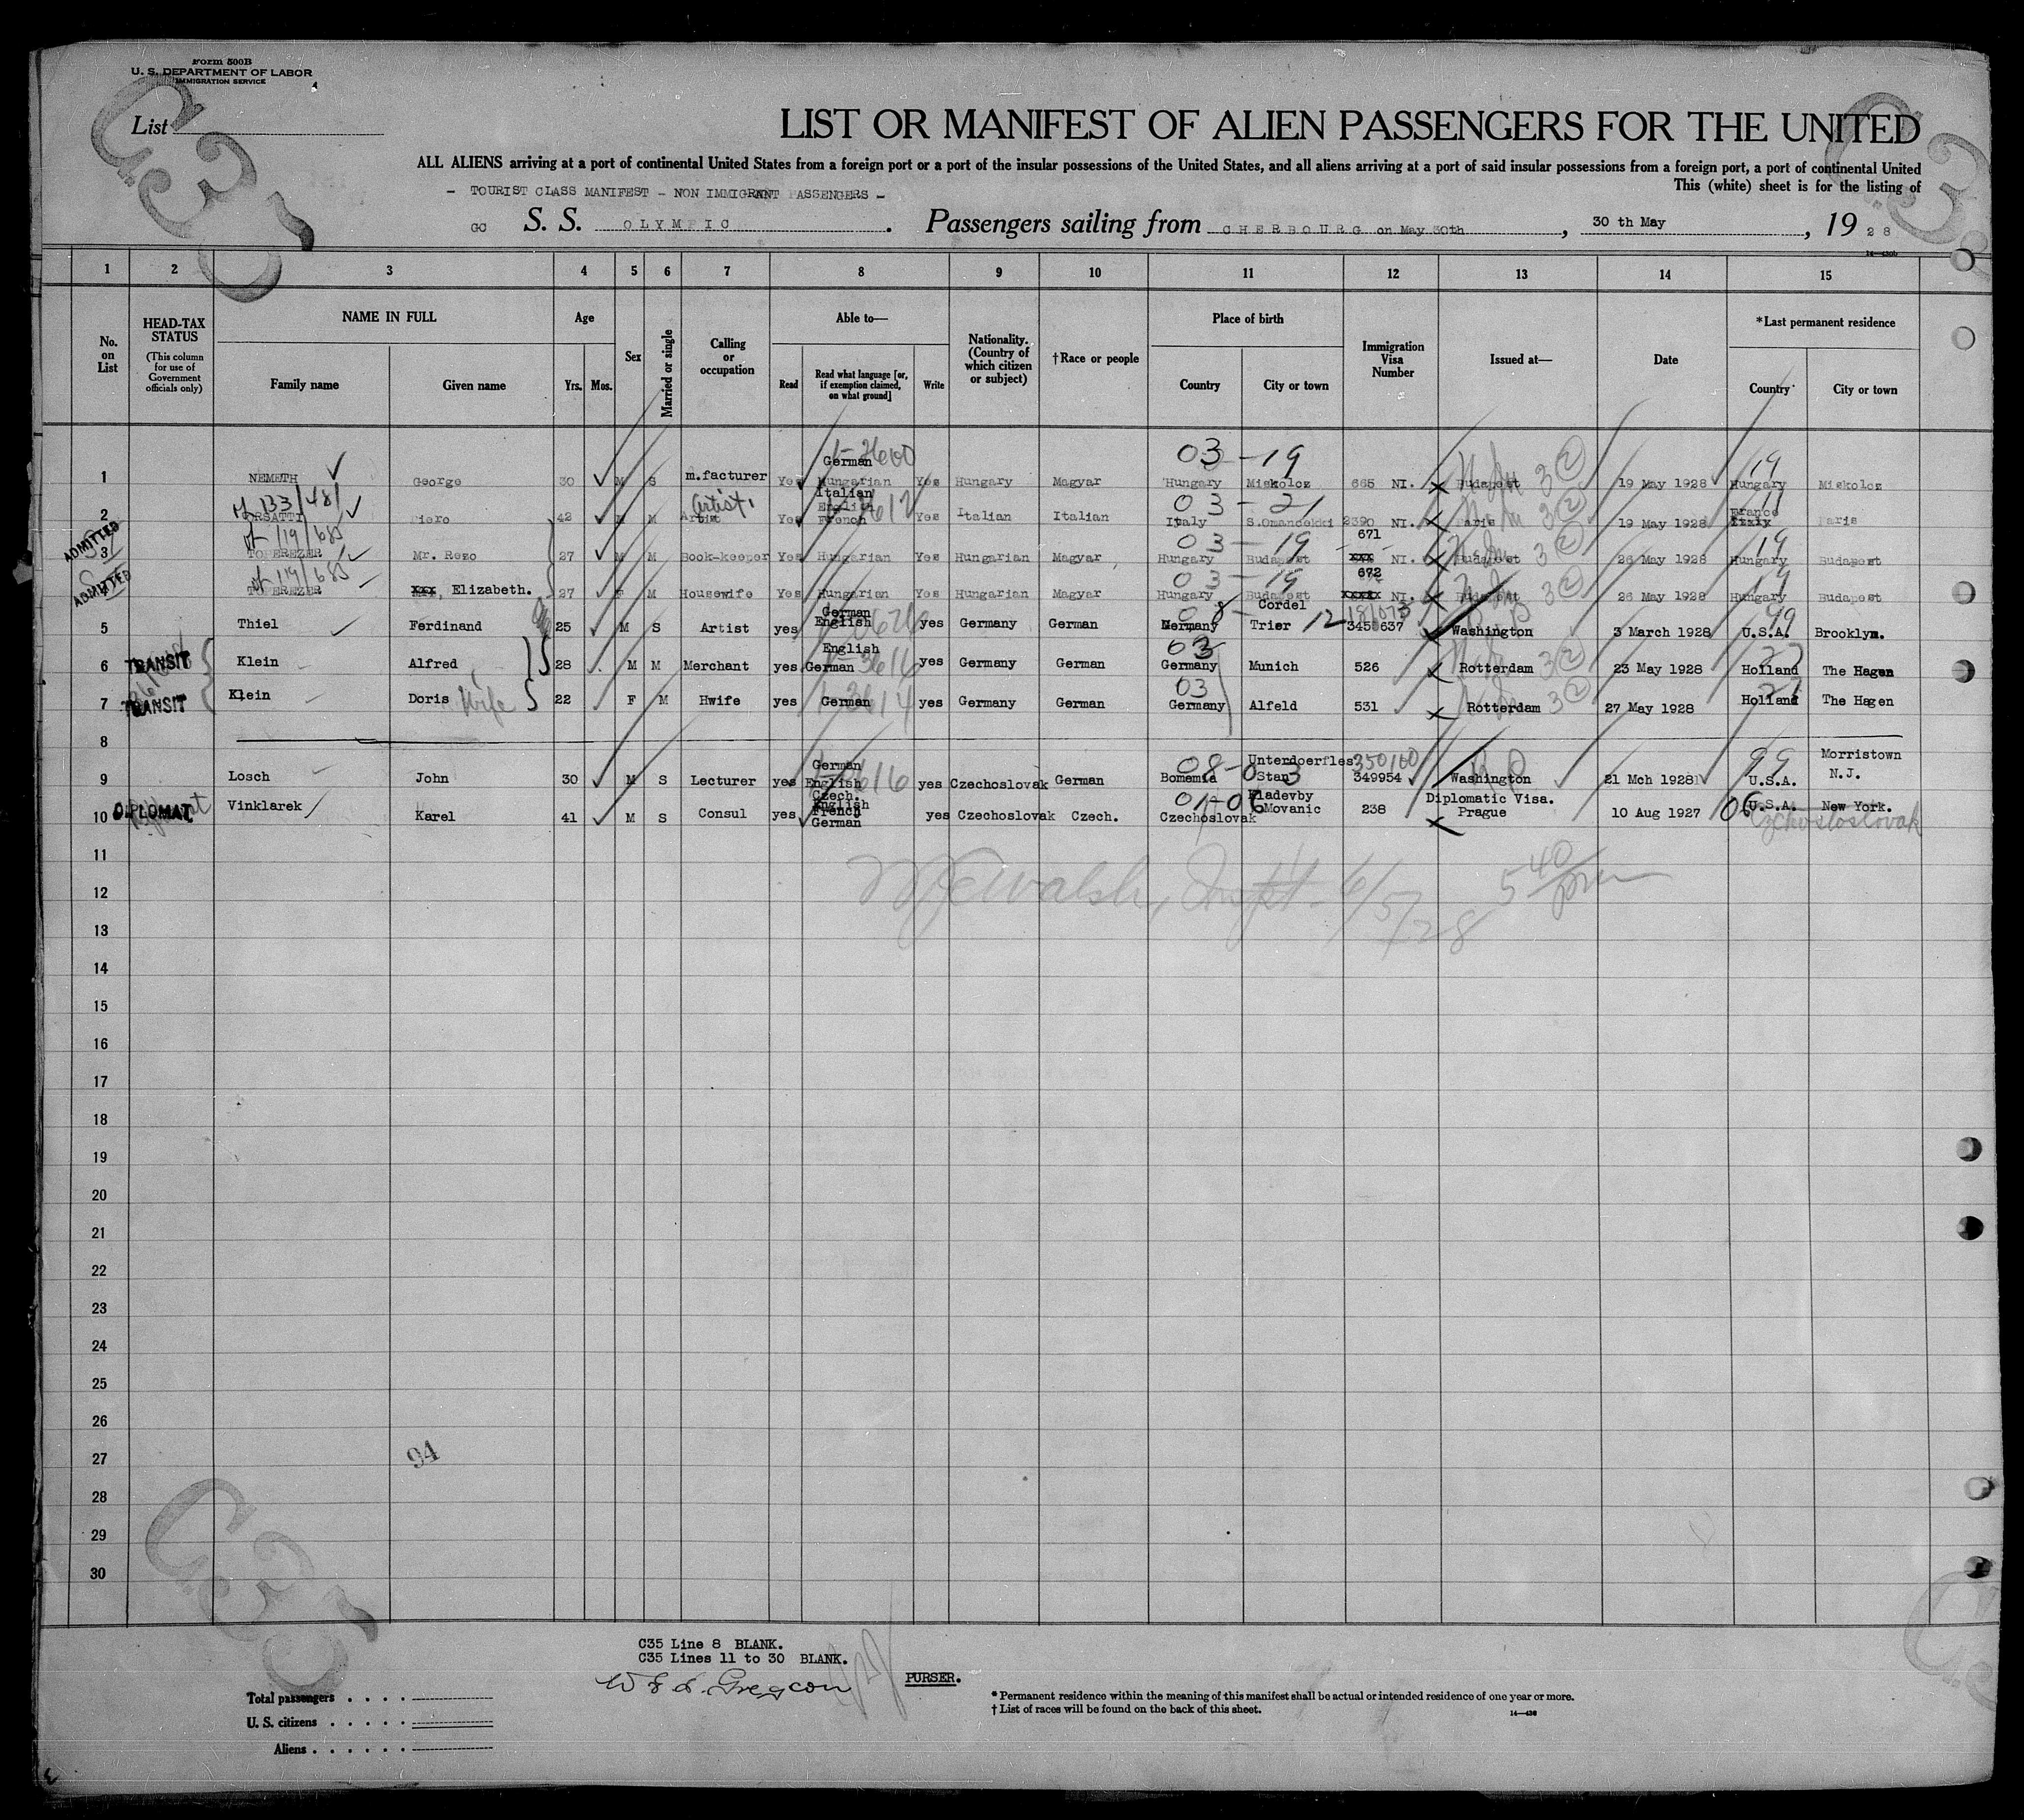 Form 500B
U. S. DEPARTMENT OF LABOR
IMMIGRATION SERVICE
C35
List
LIST OR MANIFEST OF ALIEN PASSENGERS FOR THE UNITED
ALL ALIENS arriving at a port of continental United States from a foreign port or a port of the insular possessions of the United States, and all aliens arriving at a port of said insular possessions from a foreign port, a port of continental United
This (white) sheet is for the listing of
- TOURIST CLASS MANIFEST - NON IMMIGRANT PASSENGERS -
GC S. S. OLYMPIC. Passengers sailing from CHERBOURG on May 30th, 30 th May, 1928
1 2 3 4 5 6 7 8 9 10 11 12 13 14 15
No. on List
HEAD-TAX STATUS
(This column for use of Government officials only)
NAME IN FULL
Family name Given name
Age
Yrs. Mos.
Sex
Married or single
Calling or occupation
Able to—
Read
Read what language [or, if exemption claimed, on what ground]
Write
Nationality. (Country of which citizen or subject)
†Race or people
Place of birth
Country City or town
Immigration Visa Number
Issued at—
Date
*Last permanent residence
Country City or town
1 NEMETH George 30 M S m.facturer Yes German Hungarian Yes Hungary Magyar 03-19 Hungary Miskolcz 665 NI. Budapest 19 May 1928 19 Hungary Miskolcz
2 133/481 Piero 42 M M Artist Artist Yes Italian English French Yes Italian Italian 03-21 Italy 2390 NI. Paris 19 May 1928 France Paris
ADMITTED 3 119/685 TOPEREZER Mr. Rezo 27 M M Book-keeper Yes Hungarian Yes Hungarian Magyar 03-19 Hungary Budapest 671 NI. Budapest 26 May 1928 19 Hungary Budapest
ADMITTED 119/685 TOPEREZER Elizabeth. 27 F M Housewife Yes Hungarian Yes Hungarian Magyar 03-19 Hungary Budapest 672 NI. Budapest 26 May 1928 19 Hungary Budapest
5 Thiel Ferdinand 25 M S Artist yes German English yes Germany German 08-12 Germany Cordel Trier 181073 345637 Washington 3 March 1928 99 U.S.A. Brooklyn.
TRANSIT 6 Klein Alfred 28 M M Merchant yes English German yes Germany German 03 Germany Munich 526 Rotterdam 23 May 1928 Holland The Hagen
TRANSIT 7 Klein Doris Wife 22 F M Hwife yes German yes Germany German 03 Germany Alfeld 531 Rotterdam 27 May 1928 Holland The Hagen
8
9 Losch John 30 M S Lecturer yes German English yes Czechoslovak German 08-03 Bomemia Unterdoerfles Stan 350160 349954 Washington 21 Mch 1928 99 U.S.A. Morristown N.J.
DIPLOMAT. 10 Vinklarek Karel 41 M S Consul yes Czech. English French German yes Czechoslovak Czech. 01-06 Czechoslovak Movanic 238 Diplomatic Visa. Prague 10 Aug 1927 06 U.S.A. New York.
11
12 Walsh, Inspt. 6/5/28 5 40 pm
13
14
15
16
17
18
19
20
21
22
23
24
25
26
27
94
28
29
30
C35
C35 Line 8 BLANK.
C35 Lines 11 to 30 BLANK.
PURSER.
Total passengers
U. S. citizens
Aliens
* Permanent residence within the meaning of this manifest shall be actual or intended residence of one year or more.
† List of races will be found on the back of this sheet.